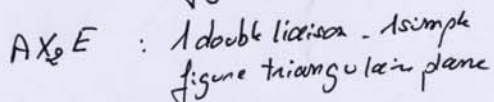 AX₂E : 1 double liaison - 1 simple
figure triangulaire plane